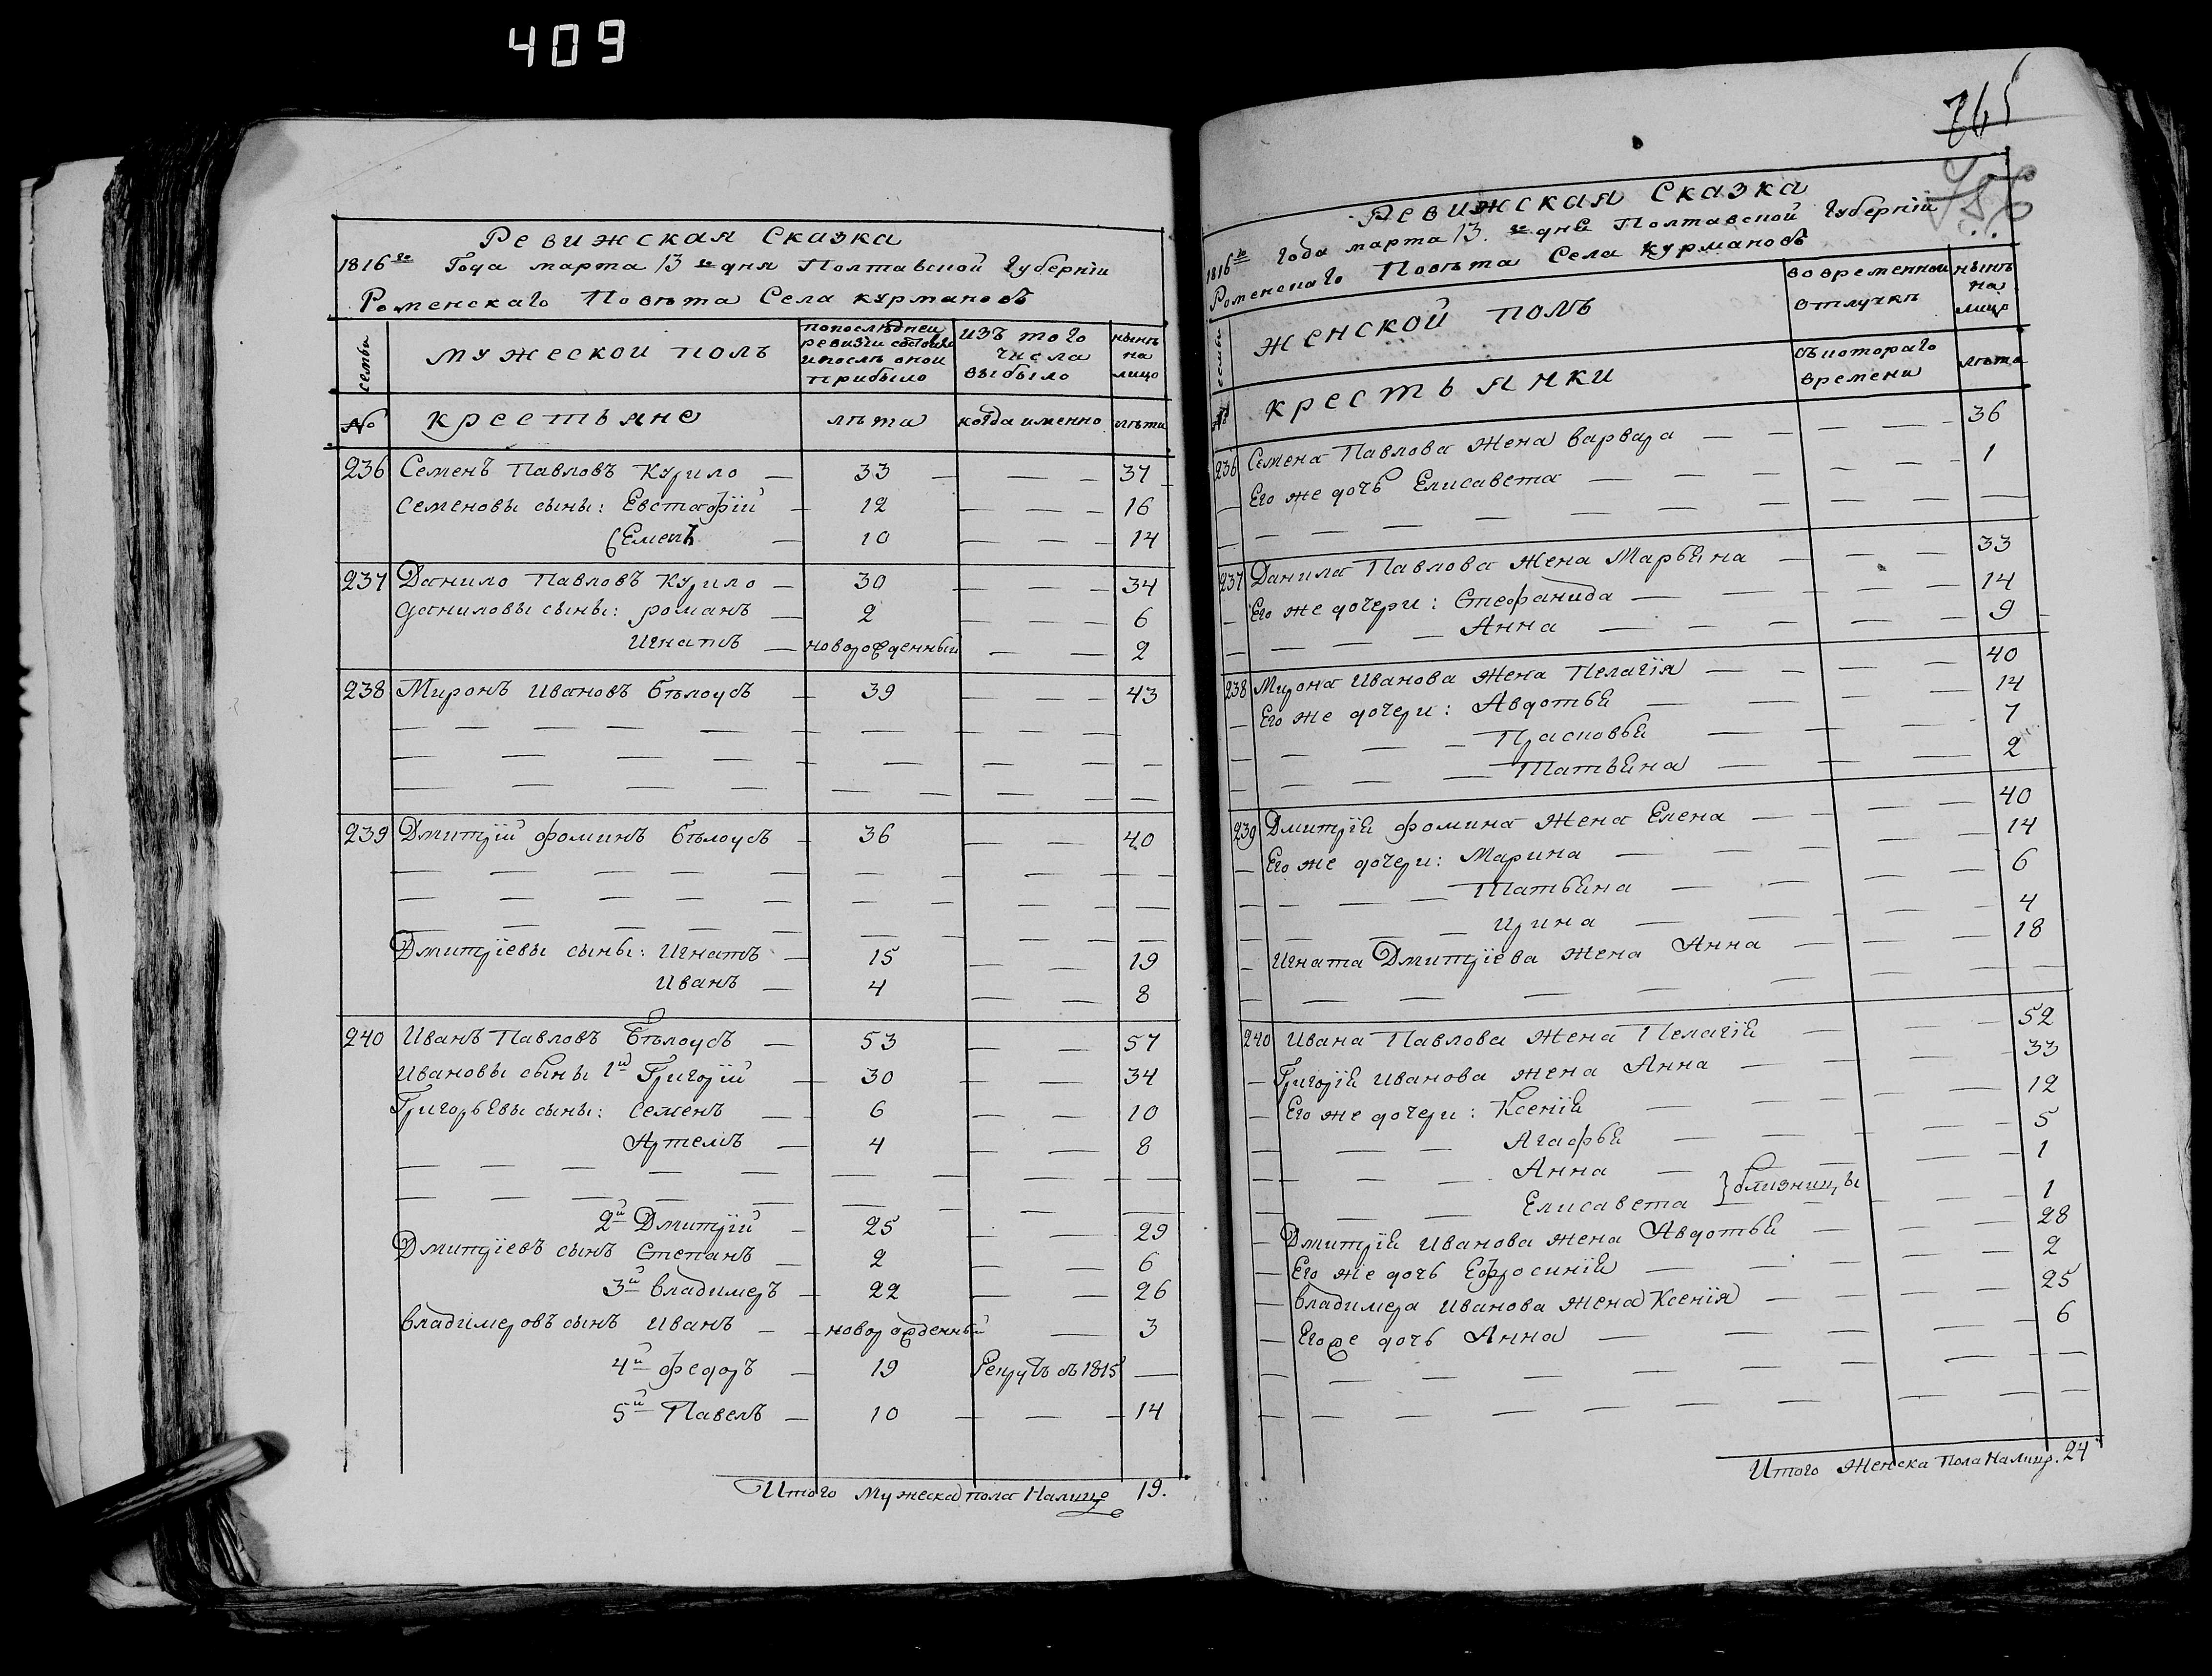 409
Ревижская Сказка
1816го Года марта 13 го дня Полтавской Губерніи
Роменскаго Повѣта Села курмановъ
семьи
мужеской полъ
попослѣдней ревизіи состояло ипослѣ оной прибыло
изъ того числа выбыло
нынѣ на лицо
№ крестьяне лѣта когда именно лѣта
236 Семенъ Павловъ Курило — 33 — — — 37
Семеновы сыны: Евстафій — 12 — — — 16
Семенъ — 10 — — — 14
237 Данило Павловъ Курило — 30 — — — 34
Даниловы сыны: романъ — 2 — — — 6
Игнатъ — новорожденный — — 2
238 Миронъ Ивановъ Бѣлоусъ — 39 — — — 43
239 Дмитрій фоминъ Бѣлоусъ — 36 — — 40
Дмитріевы сыны: Игнатъ — 15 — — 19
Иванъ — 4 — — 8
240 Иванъ Павловъ Бѣлоусъ — 53 — — 57
Ивановы сыны 1й Григорій — 30 — — 34
Григорьевы сыны: Семенъ — 6 — — 10
Артемъ — 4 — — 8
2й Дмитрій — 25 — — 29
Дмитріевъ сынъ Степанъ — 2 — — 6
3й владимеръ — 22 — — 26
владімеровъ сынъ Иванъ — новорожденный — 3
4й федоръ — 19 Рекрутъ въ 1815 —
5й Павелъ — 10 — — — 14
Итого Мужеска пола Налицо 19.
765
Ревижская Сказка
1816го Года марта 13. го дня Полтавской Губерніи
Роменскаго Повѣта Села Курмановъ
семьи
женской полъ
во временной отлучкѣ
нынѣ на лицо
№ крестьянки
съ котораго времени
лѣта
236 Семена Павлова Жена варвара — — — — 36
Его же дочь Елисавета — — — 1
237 Данила Павлова Жена Марьяна — — — 33
Его же дочери: Стефанида — — — 14
Анна — — — 9
238 Мирона Иванова Жена Пелагія — — — 40
Его же дочери: Авдотья — — — 14
Прасковья — — 7
Татьяна — — 2
239 Дмитрія фомина Жена Елена — — — 40
Его же дочери: Марина — — — 14
Татьяна — — 6
Ирина — — 4
Игната Дмитріева Жена Анна — — 18
240 Ивана Павлова Жена Пелагія — — 52
Григорія Иванова жена Анна — — 33
Его же дочери: Ксенія — — 12
Агафья — — 5
Анна — — 1
Елисавета } близницы 1
Дмитрія Иванова жена Авдотья — — 28
Его же дочь Ефросинія — — 2
владимера Иванова Жена Ксенія — — 25
Егоже дочь Анна — — 6
Итого Женска Пола Налицо. 24